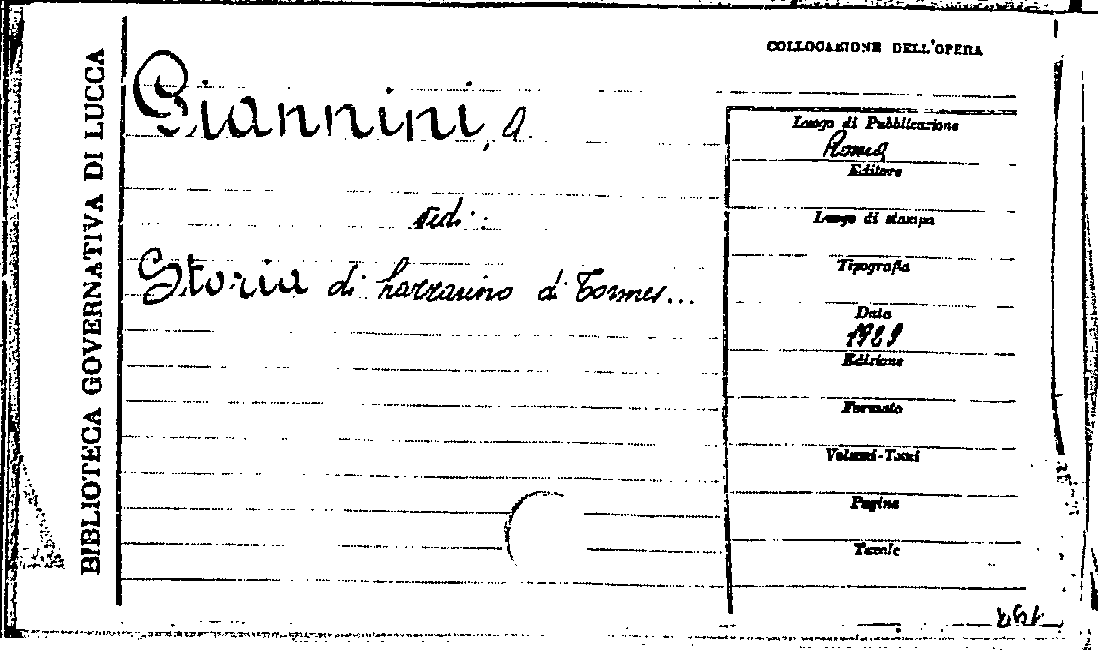 BIBLIOTECA GOVERNATIVA DI LUCCA
COLLOCAZIONE DELL'OPERA
Giannini, A.
vedi:
Storia di Lazzarino d Tormes...
Luogo di Pubblicazione
Roma
Editore
Luogo di stampa
Tipografia
Data
1929
Edizione
Formato
Volumi-Tomi
Pagine
Tavole